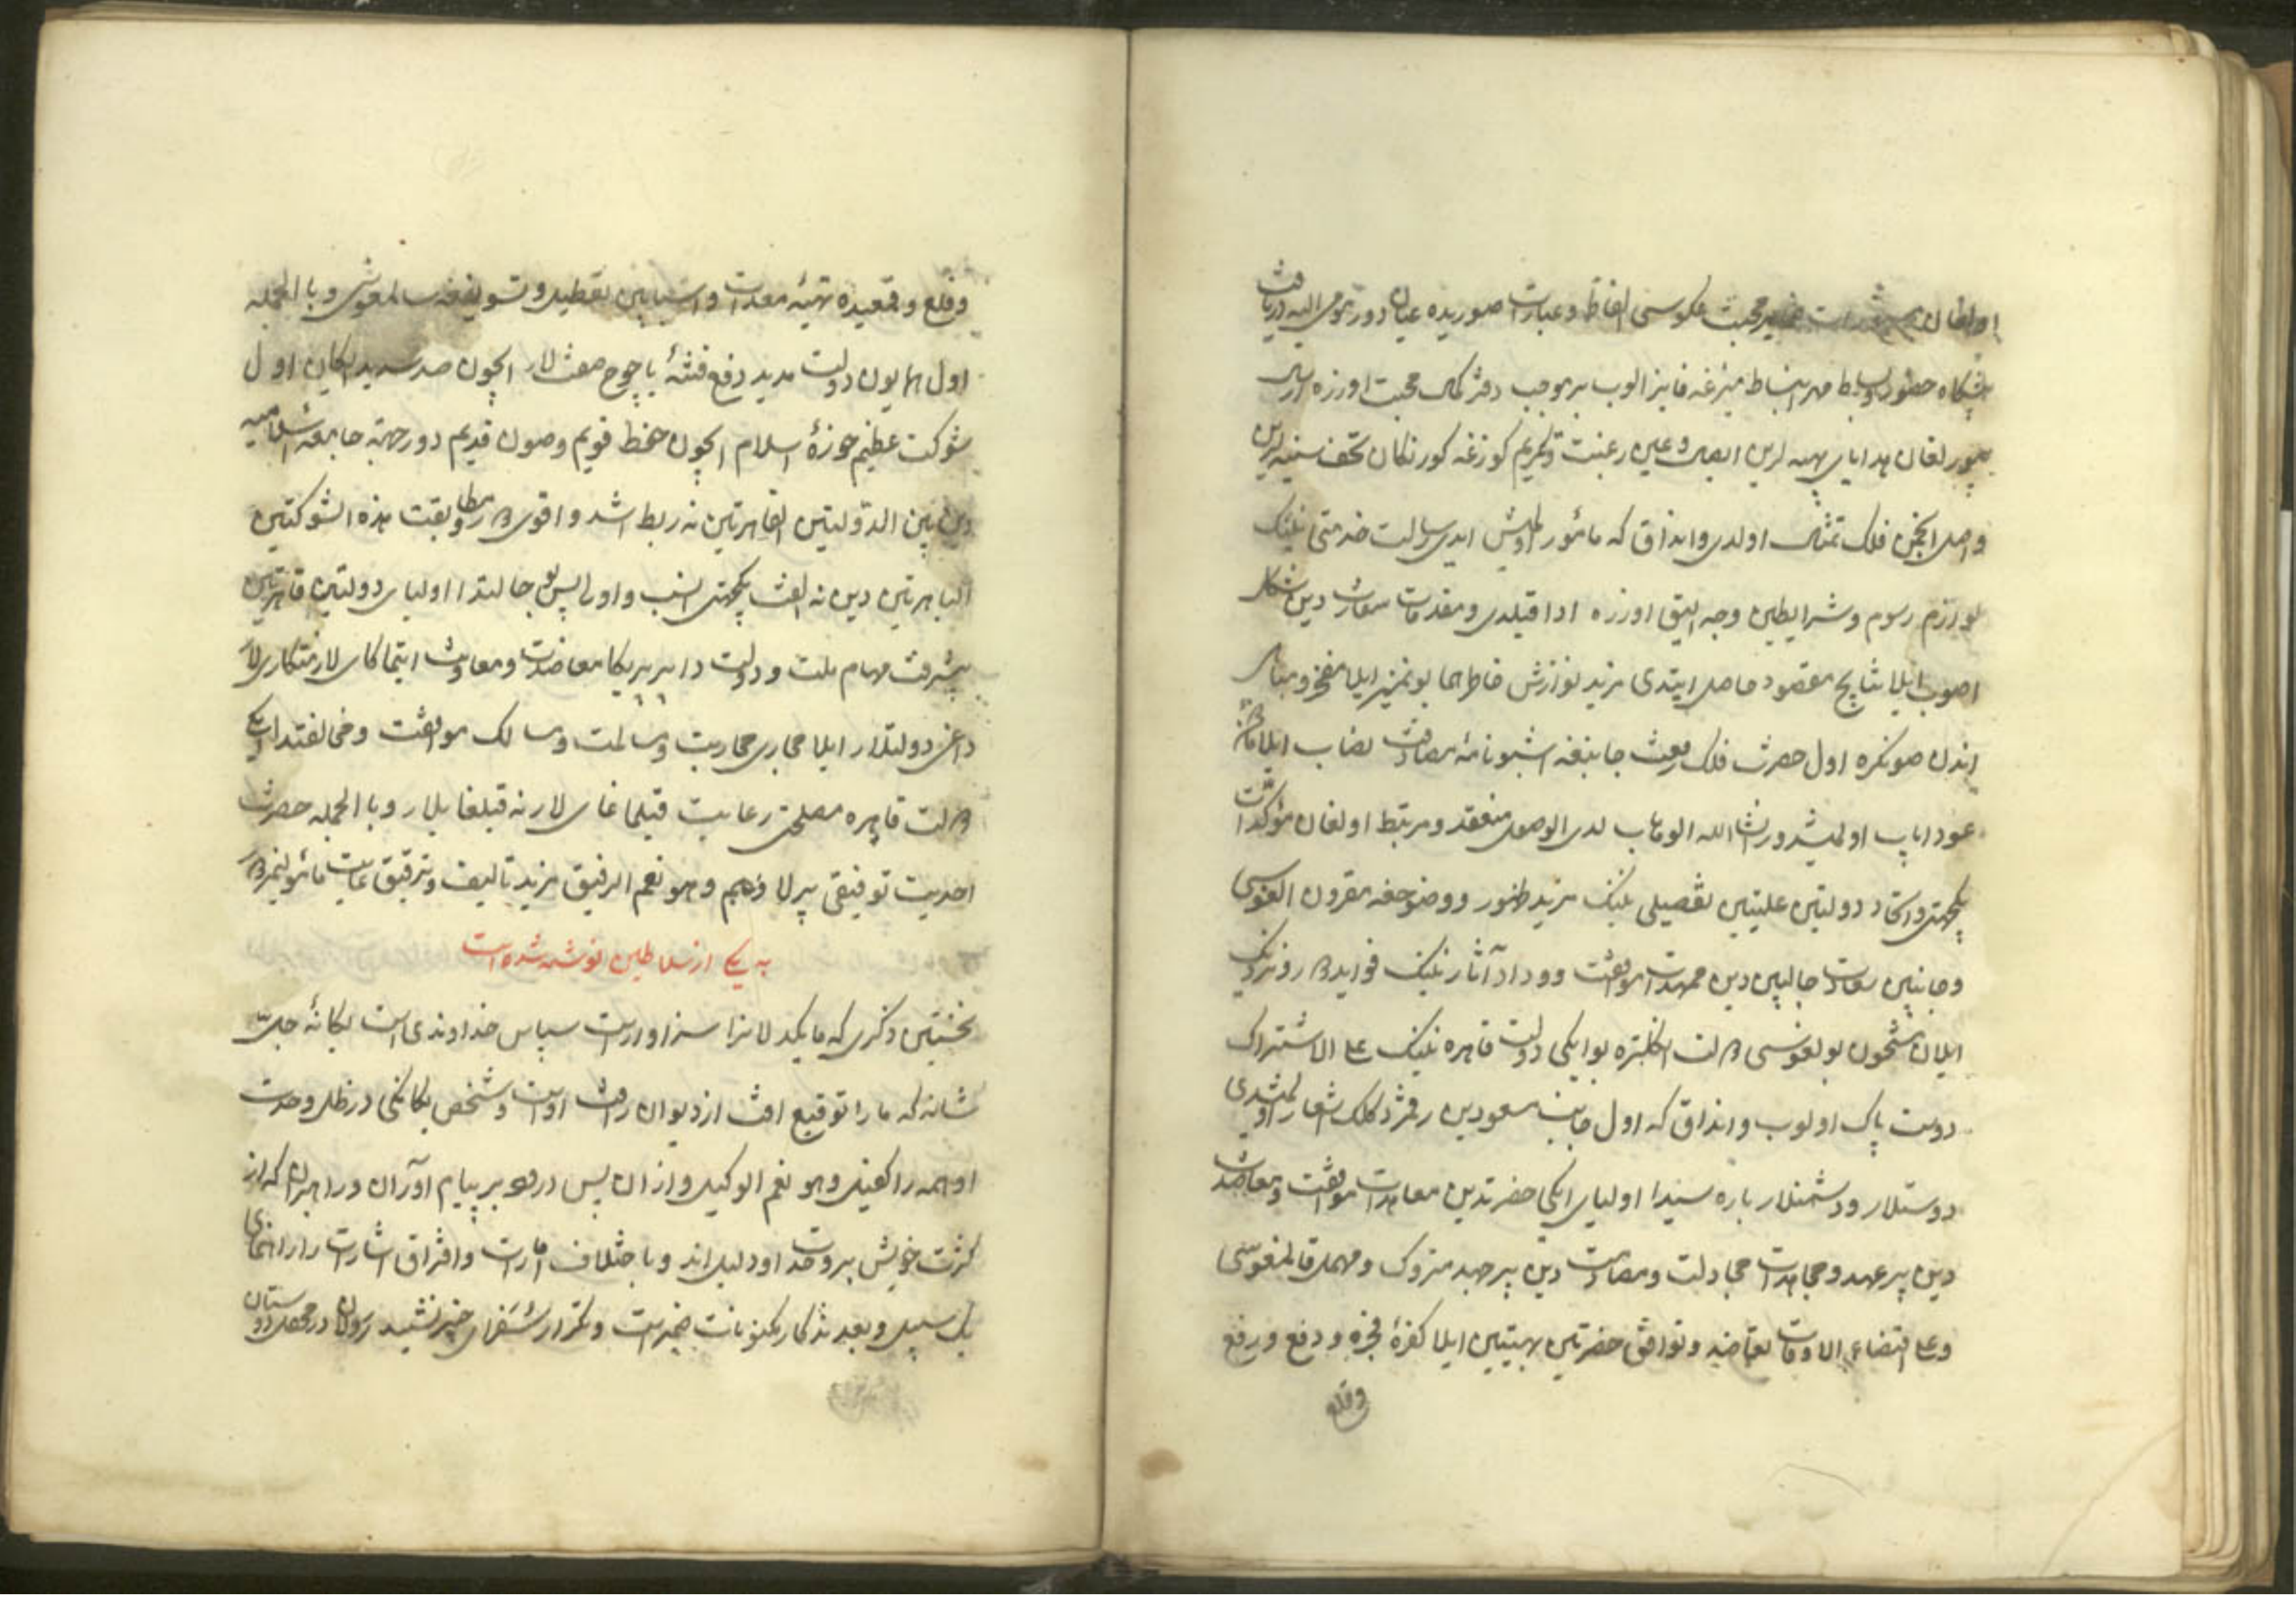 اولغان محبت عکوسی الفاظ و عبارات صوریده عیان دور مومی الیه دریافت
پیشکاه حضور بساط مهر انبساط میزغه فایز الوب بر موجب دفتر کمال محبت اوزره ارسال
بیورلغان هدایای بهیه لرین ایصال و عین رغبت و تکریم کوزغه کورنکان تحف سنیه لرین
واصل انجمن فلک تمثال اولدی و انداق که مأمور اولمش ایدی رسالت خدمتی نینک
لوازم رسوم و شرایطین وجه الیق اوزره ادا قیلدی و مقدمات سفارت دین شکل
اصوب ایلا نتایج مقصود حاصل ایتدی مزید نوازش خاطر هما یونمیز ایلا مفخر و مباهی
اندن صونکره اول حضرت فلک رفعت جانبغه اشبو نامه مصادقت نصاب ایلا
عود ایاب اولمیشدور انشاالله الوهاب لدی الوصول منعقد و مرتبط اولغان مؤکدات
یکجهتی و اتحاد دولتین علیتین تفصیلی نینک مزید ظهور و وضوحغه مقرون القوسی
و جانبین سعادت جالبین دین ممهدات موافقت و وداد آثار نینک فواید
ایلان مشحون بولغوسی دولت انکلتره بو ایکی دولت قاهره نینک علی الاشتراک
دوست پاک اولوب و انداق که اول جانب مسعودین رقمزد کلک اشعار اولمشدی
دوستلار و دشمنلار باره سیندا اولیای ایکی حضرتدین معاهدات موافقت و معاضدت
دین پر عهد و مجاهدات مجادلت و مصادمت دین پر جهد متروک و مهمل قالمغوسی
و علی اقتضاء الاوقات تعاضد و توافق حضرتین بهیتین ایلا کفره فجره و دفع و رفع
وقلع
وقلع و قمعیده تهیه معدات و اسبابین تعطیل و تسویفغه سالمغوسی و با الجمله
اول همایون دولت مدید دفع فتنه یاجوج صفت لار ایچون صد سدید لکان اول
شوکت عظیم حوزه اسلام ایچون حفظ قویم وصون قدیم دور جهته جامعه اسلامیه
دین بین الدولتین القاهرتین نه ربط اشد و اقوی و مطابقت هذه الشوکتین
الباهرتین دین نه الفت یکجهتی انسب و اولی پس بو حالتدا اولیای دولتین قاهرتین
پیشرفت مهام ملت و دولت دا بر بریکا معاضدت و معاونت ایتماکای لار
داغی دولتلار ایلا مجاری محاربت و مسالمت و مسالک موافقت و مخالفتدا
دولت قاهره مصلحتی رعایت قیلماغای لار نه قیلغایلار و با الجمله حضرت
احدیت توفیقی بیرلا وهو نعم الرفیق مزید تالیف و ترقیق غایت مأمولیمزدور
به یکی از سلاطین نوشته شده است
نخستین ذکری که ما یکدلانرا سزاوارست سپاس خداوندی است یکانه جلّ
شانه که ما را توقیع الفت از دیوان رافت اوست و شخص یکانکی در ظل وحدت
او همه را کفیل وهو نعم الوکیل و از آن پس درود بر پیام آوران و راهبران که از
کثرت خویش بر وحدت او دلیل اند و با اختلاف امارت و افتراق اشارت راز راهنمای
یک سبیل و بعد تذکار مکنونات ضمیر است و تکرار سفرای خبیر نشید رسولان در محفل دوستان